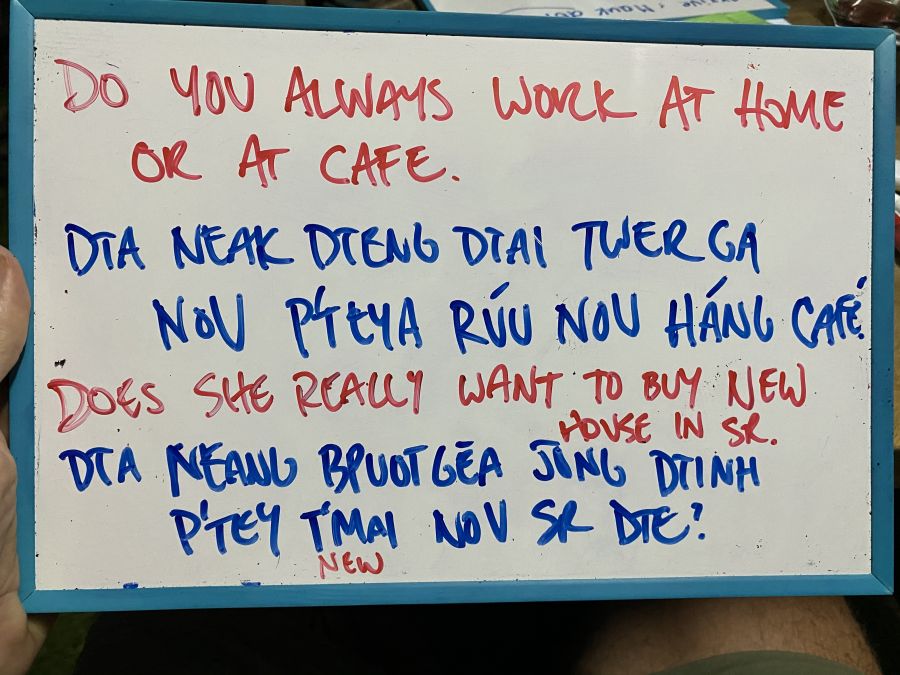 DO YOU ALWAYS WORK AT HOME
OR AT CAFE.
DTA NEAK DTENG DTAI TWER GA
NOV P'TEYA RÚU NOV HÁNG CAFÉ?
DOES SHE REALLY WANT TO BUY NEW
HOUSE IN SR.
DTA NEANG BPUOTGEA JONG DTINH
P'TEY T'MAI NOV SR DTE?
NEW